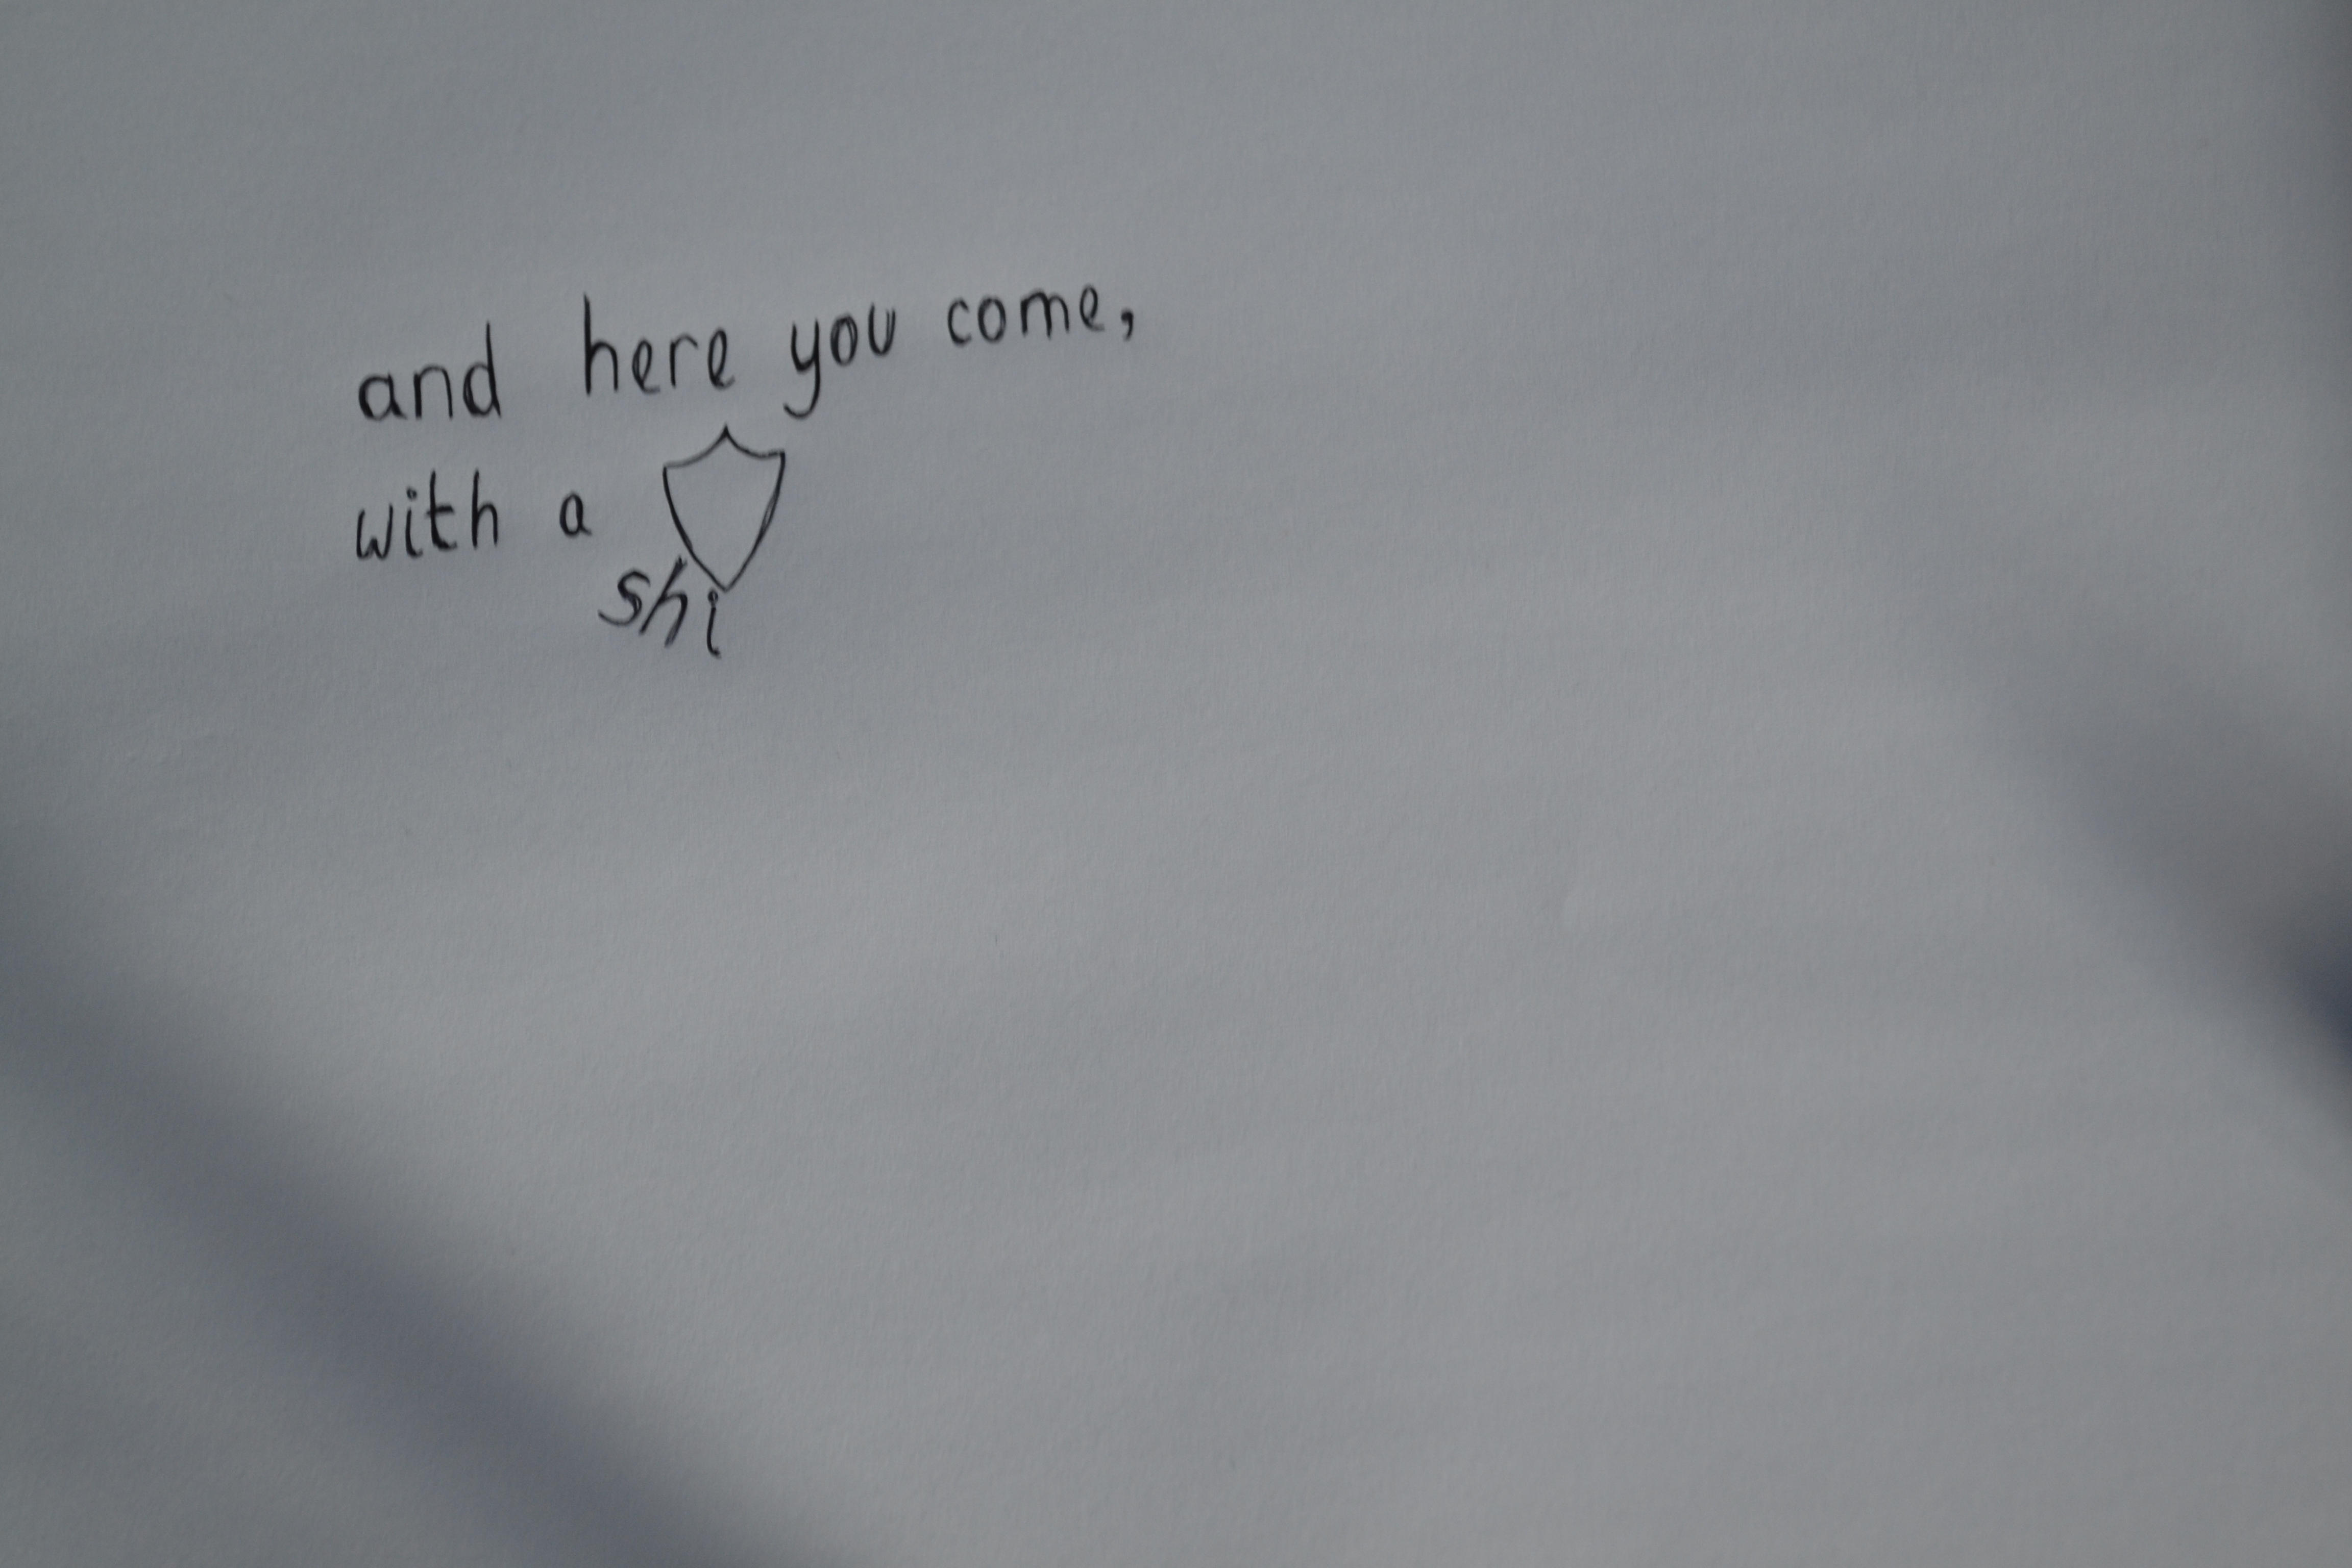 and here you come,
with a
shi